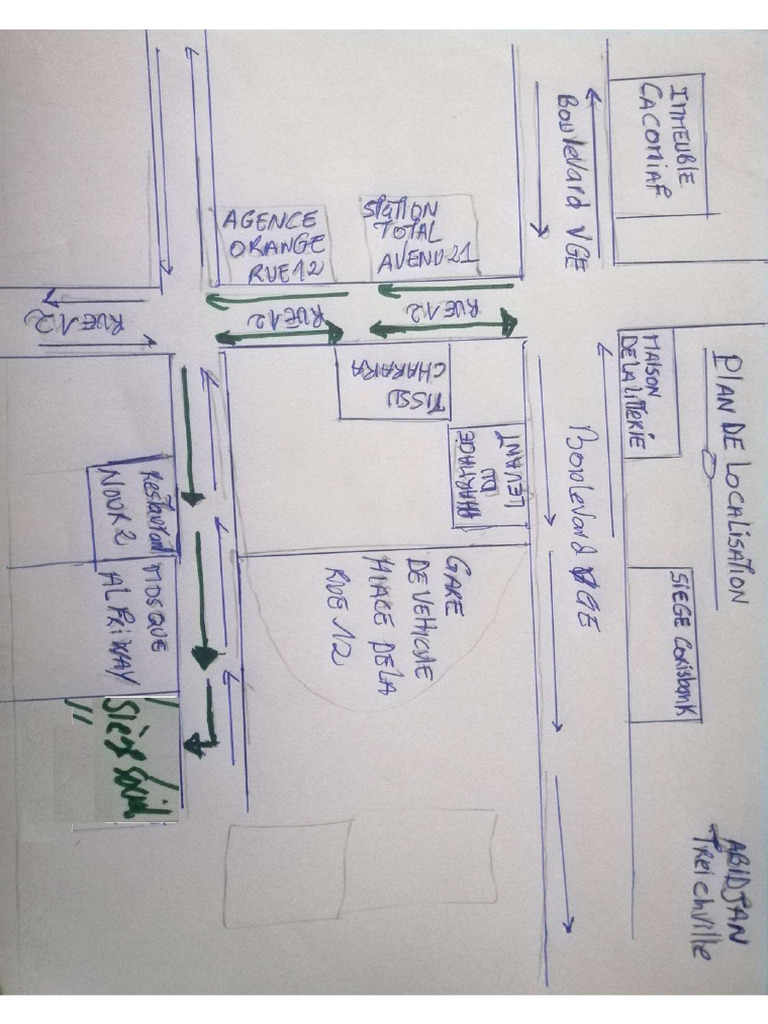 PLAN DE LOCALISATION
ABIDJAN
Treichville
IMMEUBLE
CACOMIAF
MAISON
DE LA LITTERIE
SIEGE Corisbank
Boulevard VGE
Boulevard VGE
STATION
TOTAL
AVENU 21
AGENCE
ORANGE
RUE 12
RUE 12
RUE 12
RUE 12
TISSU
CHARARA
LEVANT
DU
GARE
DE VEHICULE
HIACE DE LA
RUE 12
Restaurant
NOUR 2
MOSQUE
AL FRIWAY
Siège Social